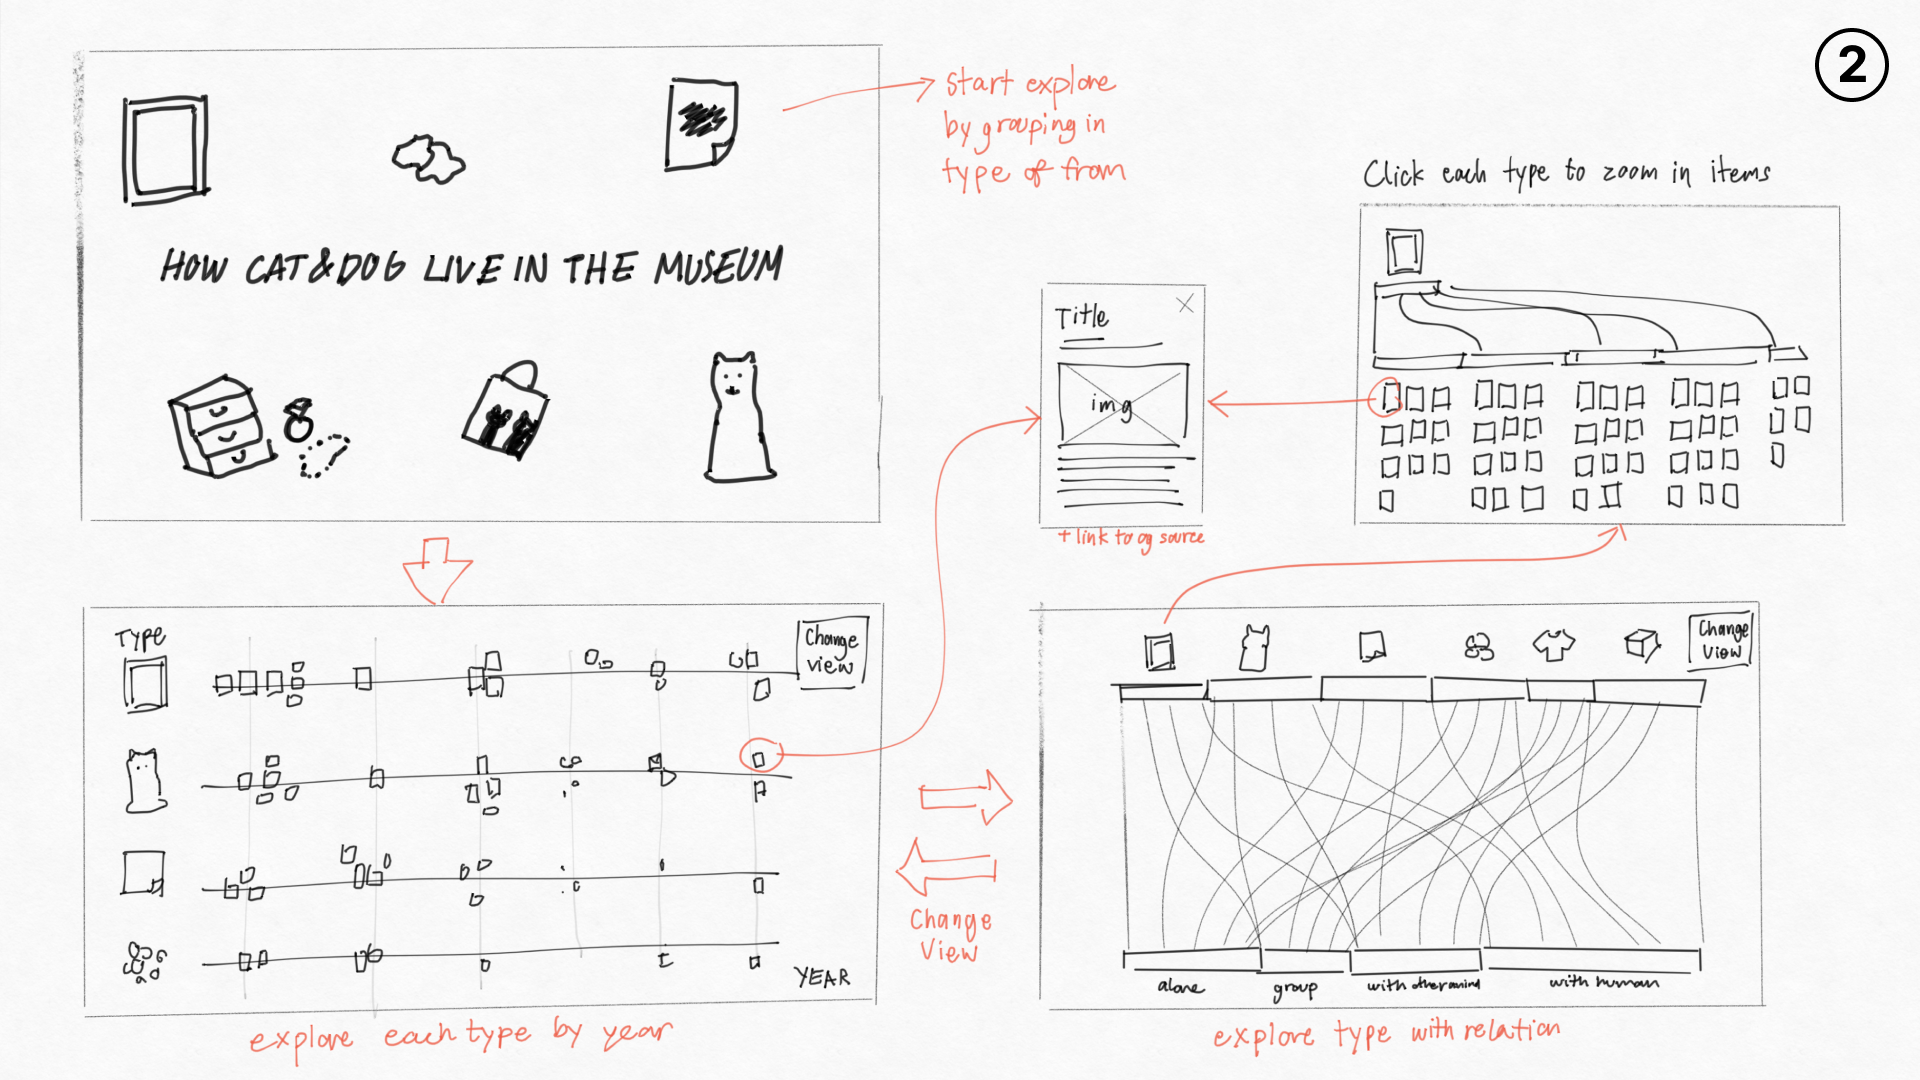 2
start explore
by grouping in
type of from
HOW CAT&DOG LIVE IN THE MUSEUM
Click each type to zoom in items
Title
img
+ link to og source
Type
Change
view
YEAR
explore each type by year
Change
View
Change
View
alone
group
with other animal
with human
explore type with relation